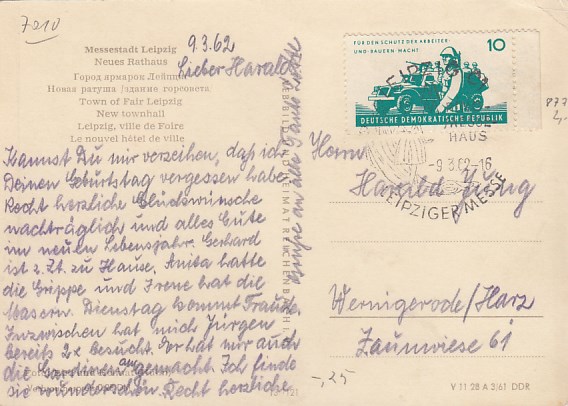 7210
Messestadt Leipzig
Neues Rathaus
Город ярмарок Лейпциг
Новая ратуша /здание горсовета
Town of Fair Leipzig
New townhall
Leipzig, ville de Foire
Le nouvel hôtel de ville
9.3.62
Lieber Harald!
Kannst Du mir verzeihen, daß ich
Deinen Geburtstag vergessen habe
Recht herzliche Glückwünsche
nachträglich und alles Gute
im neuen Lebensjahr. Gerhard
ist z. Zt. zu Hause, Anita hatte
die Grippe und Irene hat die
Masern. Dienstag kommt Traude.
Inzwischen hat mich Jürgen
bereits 2x besucht. Der hat mir auch
die Gardinen angemacht. Ich finde
sie wunderschön. Recht herzliche
Grüße an alle Tante
BILD UND HEIMAT REICHENBACH I. V.
FÜR DEN SCHUTZ DER ARBEITER-
UND-BAUERN-MACHT
10
DEUTSCHE DEMOKRATISCHE REPUBLIK
LEIPZIG
MESSE
HAUS
-9.3.62-16
LEIPZIGER MESSE
877
2,-
Herrn
Harald Jung
Wernigerode/Harz
Zaunwiese 61
-,25
V 11 28 A 3/61 DDR